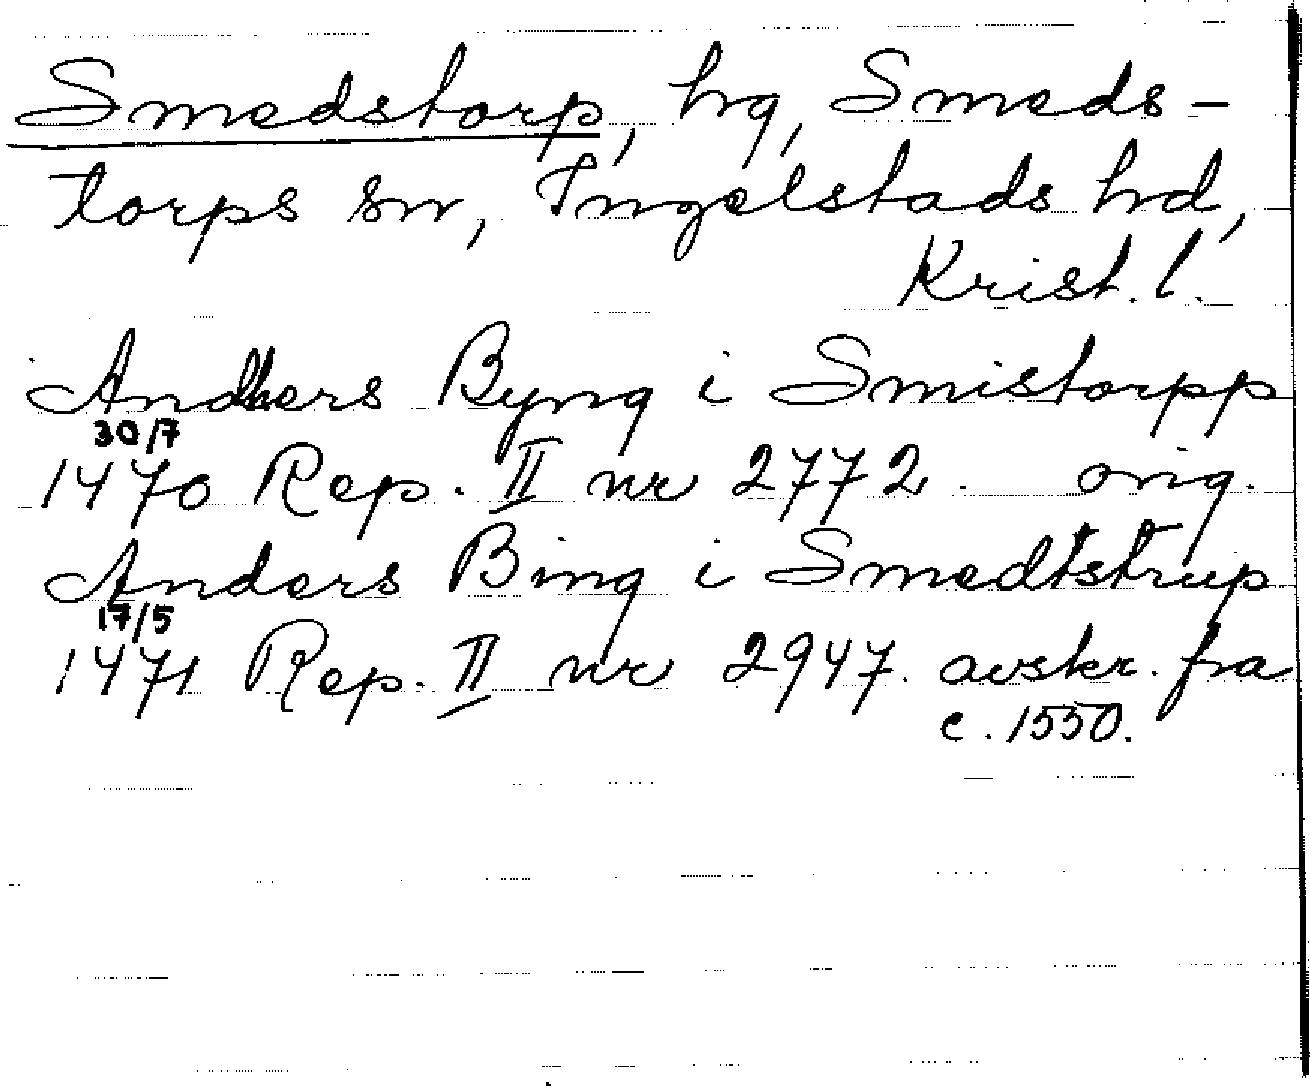 Smedstorp, hg, Smeds-
torps sn, Ingelstads hd,
Krist. l.
Andhers Byng i Smistorpp
30/7
1470 Rep. II nr 2772. orig.
Anders Bing i Smedtstrup
17/5
1471 Rep. II nr 2947. avskr. fra
c. 1550.